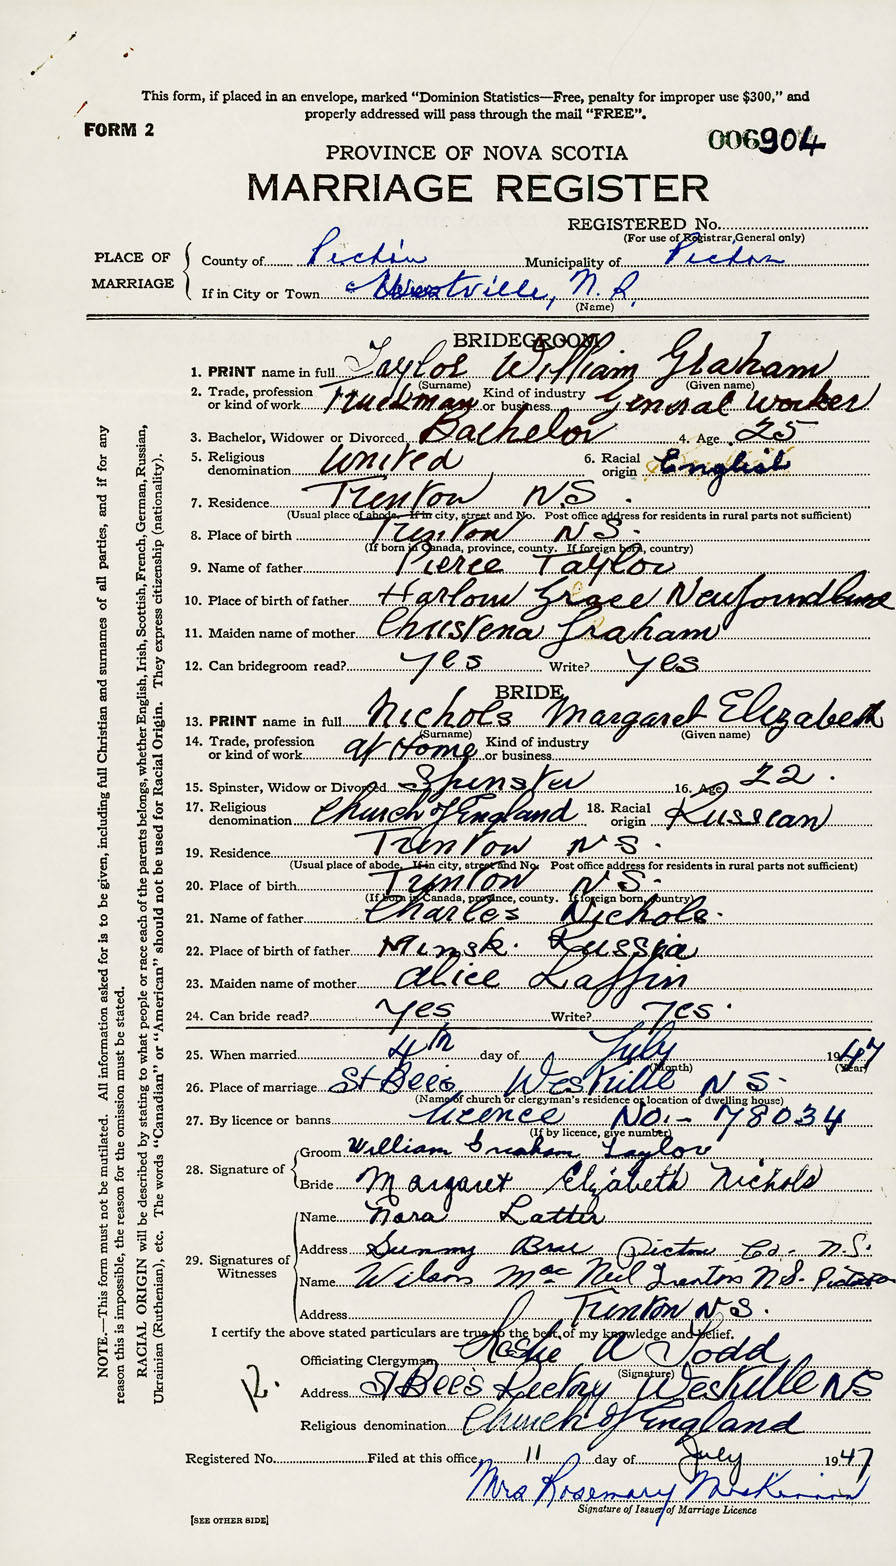 This form, if placed in an envelope, marked "Dominion Statistics—Free, penalty for improper use $300," and
properly addressed will pass through the mail "FREE".
FORM 2
006904
PROVINCE OF NOVA SCOTIA
MARRIAGE REGISTER
REGISTERED No.
(For use of Registrar General only)
PLACE OF MARRIAGE
County of Pictou Municipality of Pictou
If in City or Town Westville, N. S.
(Name)
BRIDEGROOM
1. PRINT name in full Taylor William Graham
(Surname) (Given name)
2. Trade, profession or kind of work Truckman Kind of industry or business General Worker
3. Bachelor, Widower or Divorced Bachelor 4. Age 25
5. Religious denomination United 6. Racial origin English
7. Residence Trenton NS.
(Usual place of abode. If in city, street and No. Post office address for residents in rural parts not sufficient)
8. Place of birth Trenton NS.
(If born in Canada, province, county. If foreign born, country)
9. Name of father Pierce Taylor
10. Place of birth of father Harbour Grace Newfoundland
11. Maiden name of mother Christena Graham
12. Can bridegroom read? Yes Write? Yes
BRIDE
13. PRINT name in full Nichols Margaret Elizabeth
(Surname) (Given name)
14. Trade, profession or kind of work at Home Kind of industry or business
15. Spinster, Widow or Divorced Spinster 16. Age 22.
17. Religious denomination Church of England 18. Racial origin Russian
19. Residence Trenton NS.
(Usual place of abode. If in city, street and No. Post office address for residents in rural parts not sufficient)
20. Place of birth Trenton NS.
(If born in Canada, province, county. If foreign born, country)
21. Name of father Charles Nichols.
22. Place of birth of father Minsk. Russia
23. Maiden name of mother Alice Laffin
24. Can bride read? Yes Write? Yes.
25. When married 4th day of July 1947
(Month) (Year)
26. Place of marriage St Bees Westville NS.
(Name of church or clergyman's residence or location of dwelling house)
27. By licence or banns licence No:- 78034
(If by licence, give number)
28. Signature of
Groom William Graham Taylor
Bride Margaret Elizabeth Nichols
29. Signatures of Witnesses
Name Nora Latter
Address Sunny Brae Pictou Co. N.S.
Name Wilson MacNeil Trenton N.S. Pictou
Address Trenton NS.
I certify the above stated particulars are true to the best of my knowledge and belief.
Officiating Clergyman Leslie A Todd
(Signature)
Address St Bees Rectory Westville NS
Religious denomination Church of England
Registered No. Filed at this office 11 day of July 1947
Mrs Rosemary
Signature of Issuer of Marriage Licence
[SEE OTHER SIDE]
NOTE.—This form must not be mutilated. All information asked for is to be given, including full Christian and surnames of all parties, and if for any
reason this is impossible, the reason for the omission must be stated.
RACIAL ORIGIN will be described by stating to what people or race each of the parents belongs, whether English, Irish, Scottish, French, German, Russian,
Ukrainian (Ruthenian), etc. The words "Canadian" or "American" should not be used for Racial Origin. They express citizenship (nationality).